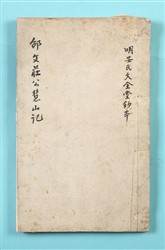 明安氏大金堂鈔本
邵文莊公慧山記